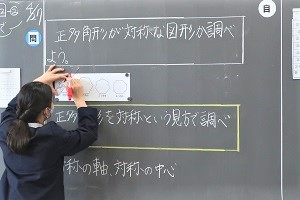 4/27
問
自
正多角形が対称な図形か調べ
よう。
正多 形を対称という見方で調べ
称の軸、対称の中心